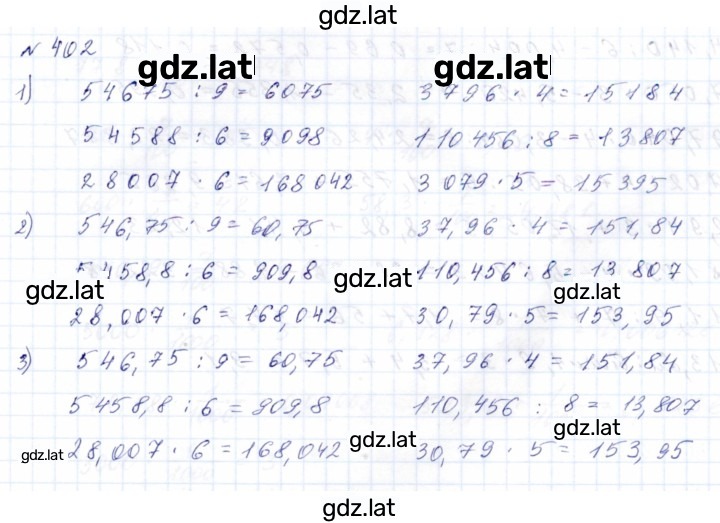 gdz.lat
№ 402
gdz.lat gdz.lat
1) 54675 : 9 = 6075 3796 · 4 = 15184
54588 : 6 = 9098 110456 : 8 = 13807
28007 · 6 = 168042 3079 · 5 = 15395
2) 546,75 : 9 = 60,75 37,96 · 4 = 151,84
5458,8 : 6 = 909,8 110,456 : 8 = 13 807
gdz.lat gdz.lat gdz.lat
28,007 · 6 = 168,042 30,79 · 5 = 153,95
3) 546,75 : 9 = 60,75 37,96 · 4 = 151,84
5458,8 : 6 = 909,8 110,456 : 8 = 13,807
gdz.lat gdz.lat gdz.lat
28,007 · 6 = 168,042 30,79 · 5 = 153,95
gdz.lat